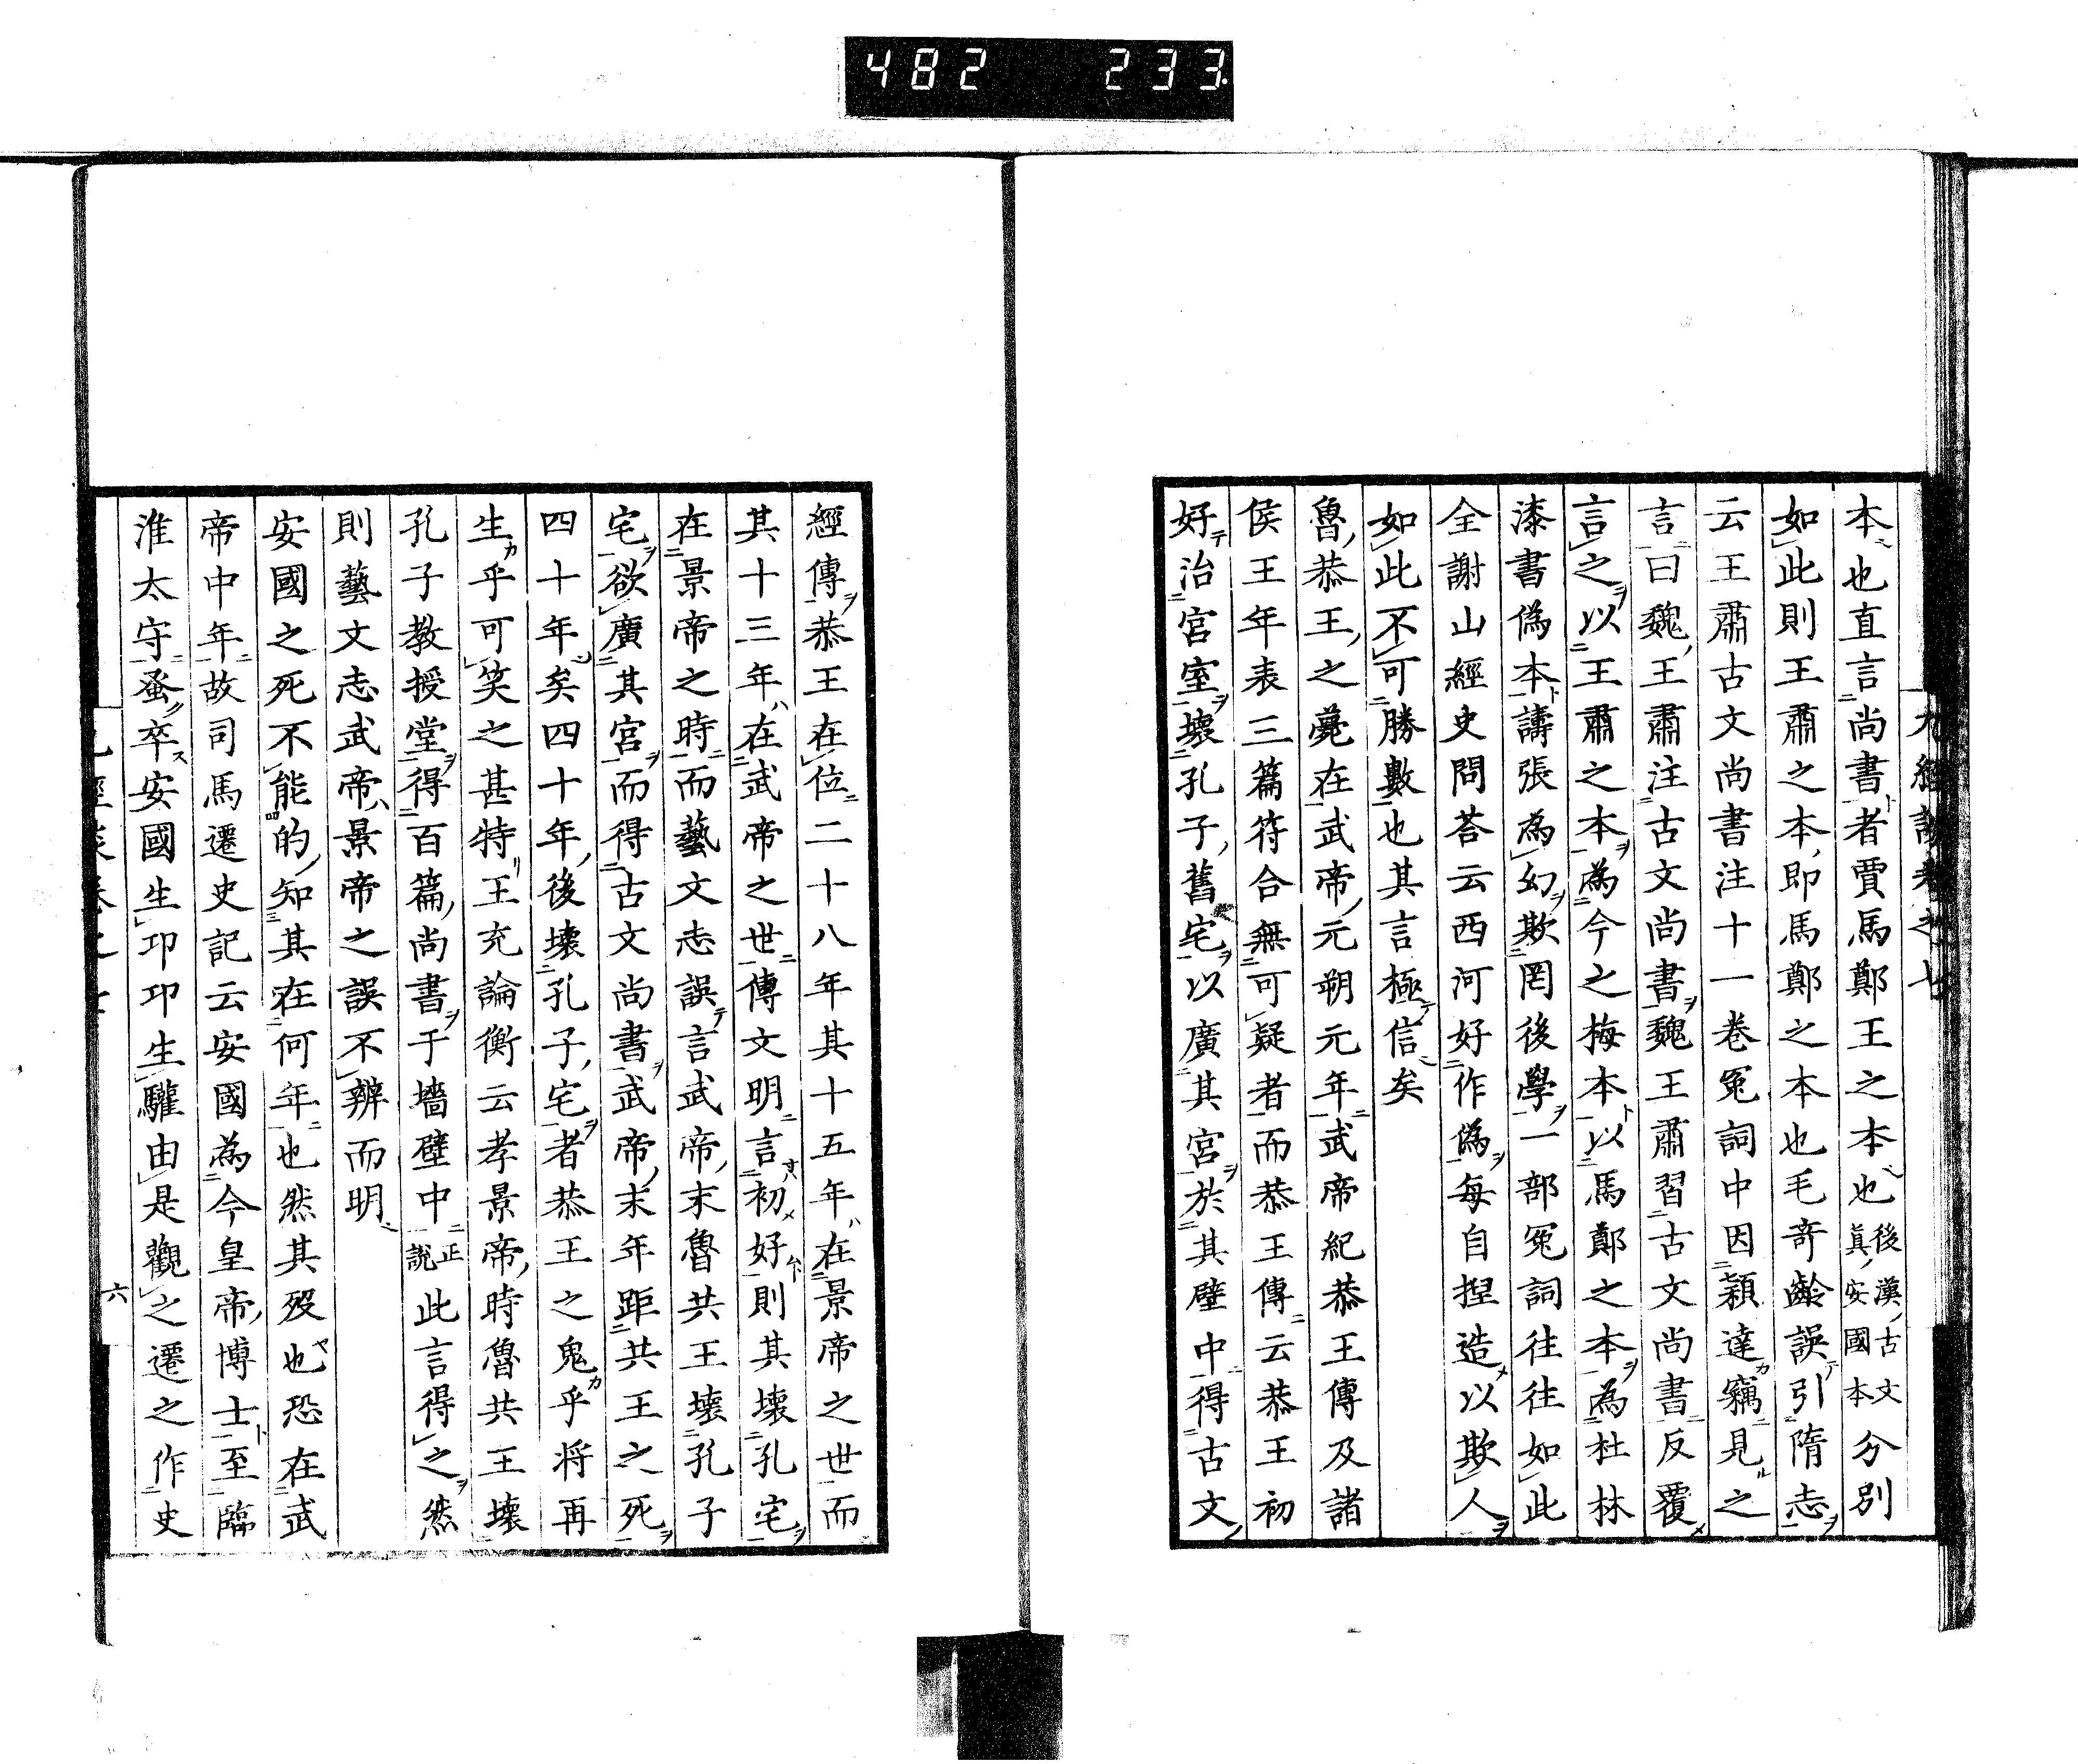 482 233
九經談卷之七
本也直言尚書者賈馬鄭王之本也後漢古文眞安國本分別
如此則王肅之本即馬鄭之本也毛奇齡誤引隋志
云王肅古文尚書注十一卷冤詞中因穎達竊見之
言曰魏王肅注古文尚書魏王肅習古文尚書反覆
言之以王肅之本為今之梅本以馬鄭之本為杜林
漆書偽本譸張為幻欺罔後學一部冤詞往往如此
全謝山經史問荅云西河好作偽每自捏造以欺人
如此不可勝數也其言極信矣
魯恭王之薨在武帝元朔元年武帝紀恭王傳及諸
侯王年表三篇符合無可疑者而恭王傳云恭王初
好治宮室壞孔子舊宅以廣其宮於其壁中得古文
經傳恭王在位二十八年其十五年在景帝之世而
其十三年在武帝之世傳文明言初好則其壞孔宅
在景帝之時而藝文志誤言武帝末魯共王壞孔子
宅欲廣其宮而得古文尚書武帝末年距共王之死
四十年矣四十年後壞孔子宅者恭王之鬼乎将再
生乎可笑之甚特王充論衡云孝景帝時魯共王壞
孔子教授堂得百篇尚書于墻壁中正說此言得之然
則藝文志武帝景帝之誤不辨而明
安國之死不能的知其在何年也然其歿也恐在武
帝中年故司馬遷史記云安國為今皇帝博士至臨
淮太守蚤卒安國生卭卭生驩由是觀之遷之作史
六